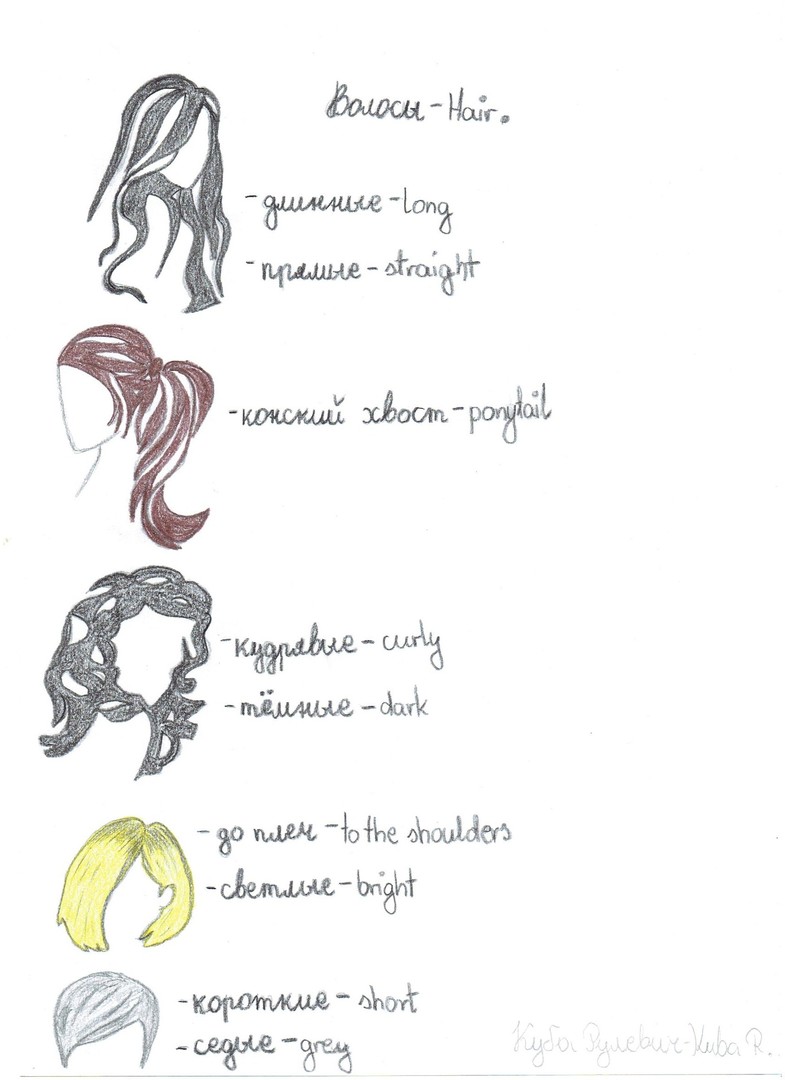 Волосы - Hair.
- длинные - long
- прямые - straight
- конский хвост - ponytail
- кудрявые - curly
- тёмные - dark
- до плеч - to the shoulders
- светлые - bright
- короткие - short
- седые - grey
Куба Рулевич - Kuba R.